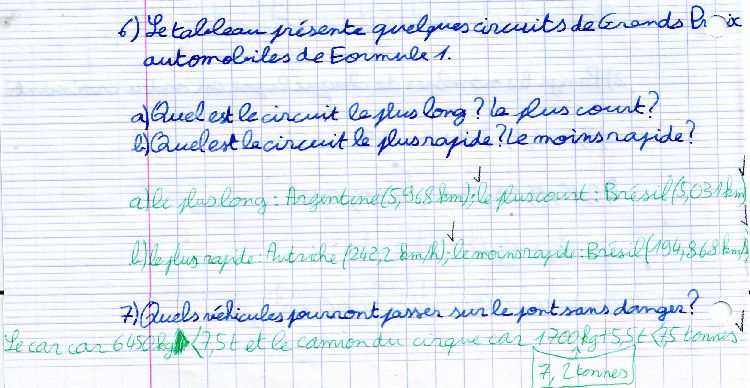 6) Le tableau présente quelques circuits de Grands Prix
automobiles de Formule 1.
a) Quel est le circuit le plus long ? le plus court ?
b) Quel est le circuit le plus rapide ? Le moins rapide ?
a) le plus long : Argentine (5,968 km) ; le plus court : Brésil (5,031 km)
b) le plus rapide : Autriche (242,2 km/h) ; le moins rapide : Brésil (194,868 km/h)
7) Quels véhicules pourront passer sur le pont sans danger ?
Le car car 6450 kg < 7,5 t et le camion du cirque car 1700 kg + 5,5 t < 7,5 tonnes
7,2 tonnes